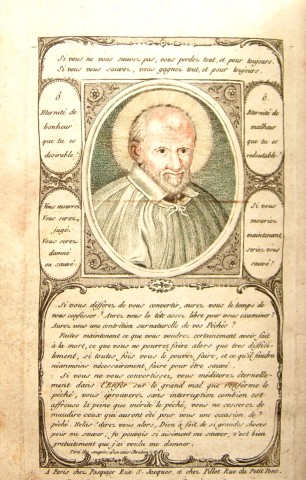 Si vous ne vous sauvez pas, vous perdez tout, et pour toujours.
Si vous vous sauvez, vous gagnez tout, et pour toujours.
ô
Eternité de
bonheur
que tu es
désirable !
ô
Eternité de
malheur
que tu es
redoutable !
Vous mourrez
Vous serez
jugé,
Vous serez
damné
ou sauvé.
Si vous
mouriez
maintenant,
seriez vous
sauvé ?
Si vous différez de vous convertir, aurez vous le temps de
vous confesser ? Aurez vous la tête assez libre pour vous examiner ?
Aurez vous une contrition surnaturelle de vos Péchés ?
Faites maintenant ce que vous voudrez certainement avoir fait
à la mort, ce que vous ne pourrez faire alors que très diffici-
lement, si toutes fois vous le pouvez faire, et ce qu'il faudra
néanmoins nécessairement, faire pour être sauvé.
Si vous ne vous convertissez, vous méditerez éternelle-
ment dans l'Enfer sur le grand mal que renferme le
péché, vous éprouverez sans interruption combien est
affreuse la peine que mérite le péché, vous ne cesserez de
maudire ceux qui auront été pour vous une occasion de
péché. Hélas ! direz vous alors, Dieu a fait de si grandes choses
pour me sauver; je pouvois si aisément me sauver, c'est bien
gratuitement que j'ai voulu me damner.
A Paris chez Pasquier Rue S. Jacques, et chez Pillot Rue du Petit Pont.